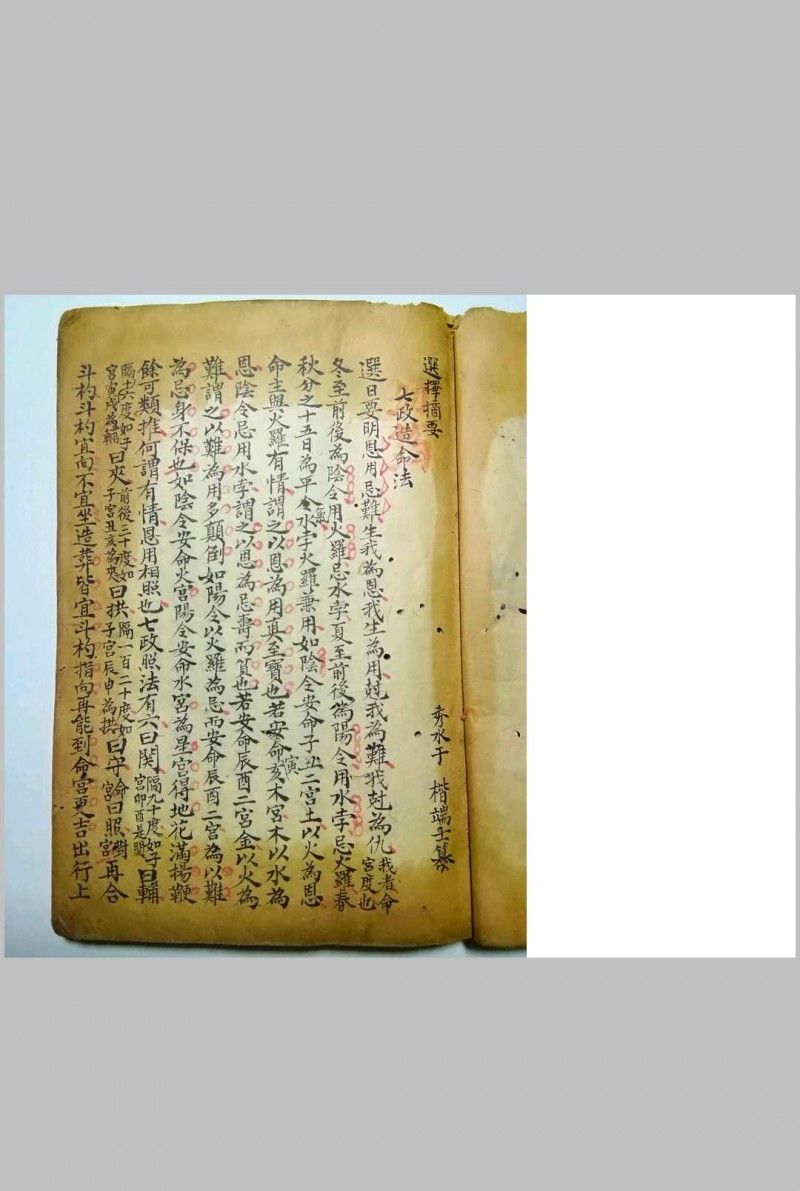 選擇摘要
秀水于 楷端士纂
七政造命法
選日要明恩用忌難生我為恩我生為用尅我為難我尅為仇我者命宮度也
冬至前後為陰令用火羅忌水孛夏至前後為陽令用水孛忌火羅春
秋分之十五日為平氣令水孛火羅兼用如陰令安命子丑二宮土以火為恩
命主與火羅有情謂之以恩為用真至寶也若安命寅亥木宮木以水為
恩陰令忌用水孛謂之以恩為忌壽而貧也若安命辰酉二宮金以火為
難謂之以難為用多顛倒如陽令以火羅為忌而安命辰酉二宮為以難
為忌身不保也如陰令安命火宮陽令安命水宮為星宮得地花滿揚鞭
餘可類推何謂有情恩用相照也七政照法有六曰関隔九十度如子宮卯酉是関曰輔
隔六十度如子宮寅戌為輔曰夾前後三十度如子宮丑亥為夾曰拱隔一百二十度如子宮辰申為拱曰守命宮曰照對宮再合
斗杓斗杓宜向不宜坐造葬皆宜斗杓指向再能到命宮更吉出行上